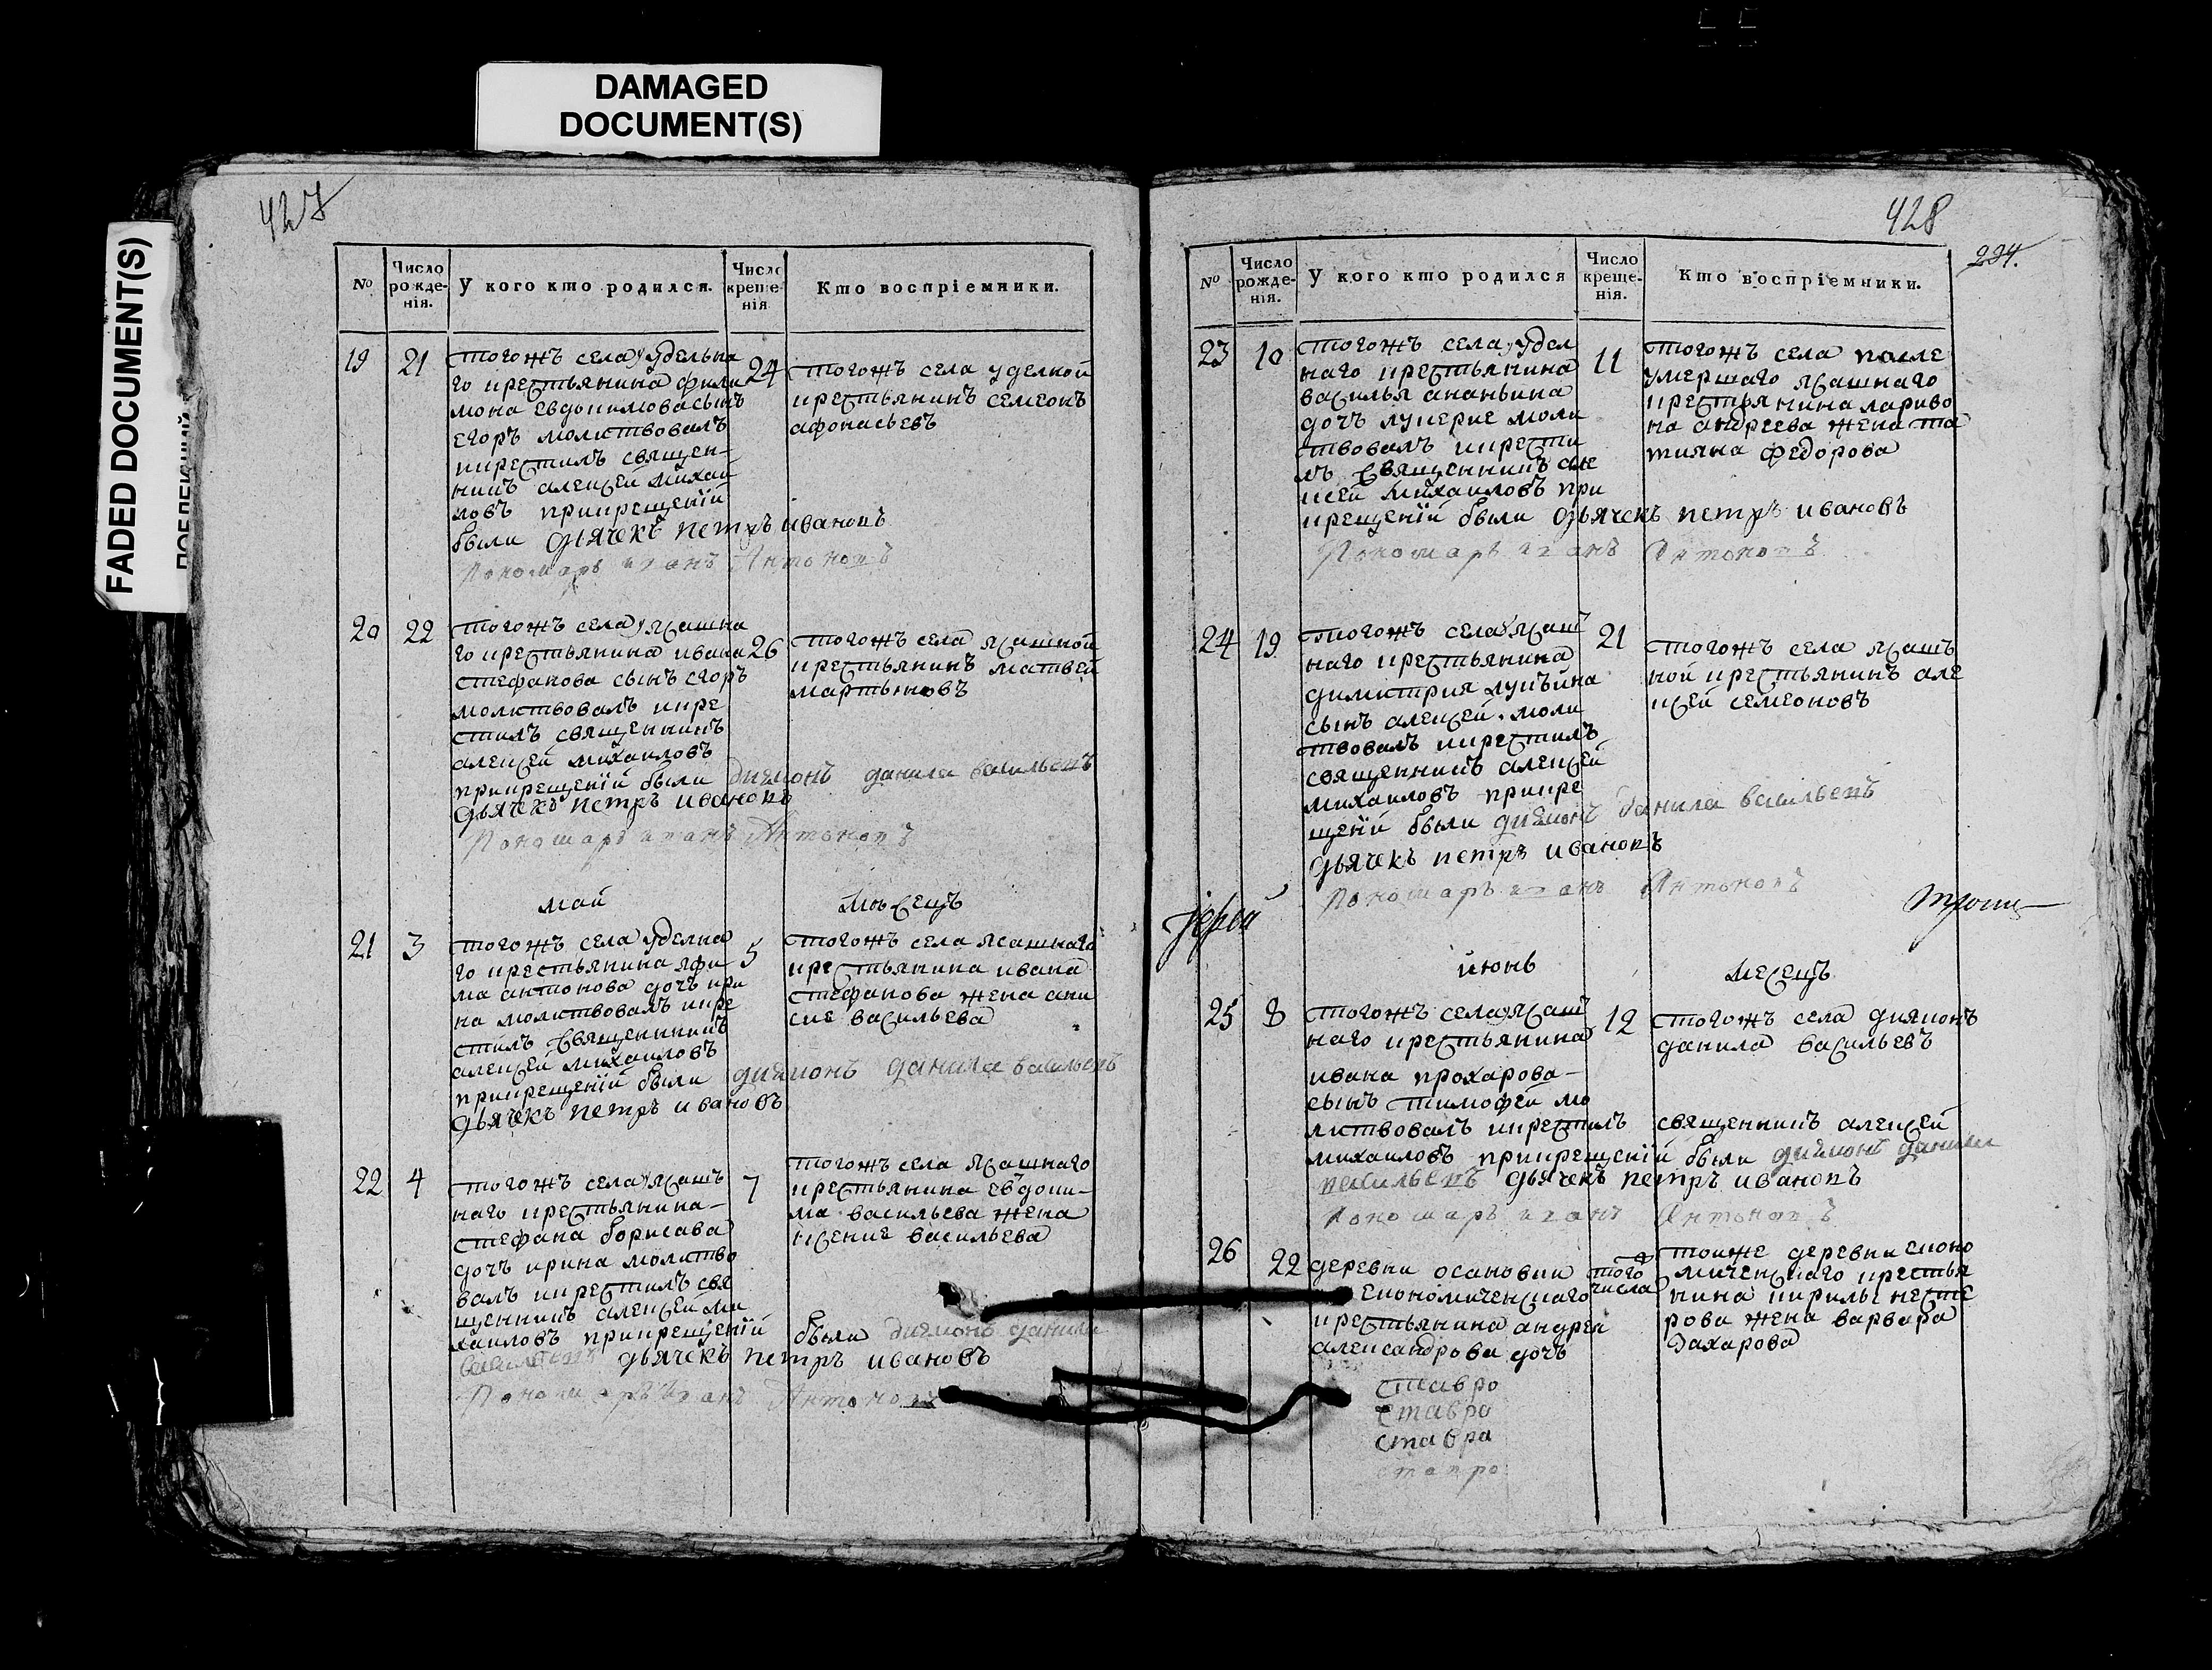 DAMAGED
DOCUMENT(S)
FADED DOCUMENT(S)
427
№
Число рожденія.
У кого кто родился.
Число крещенія
Кто воспріемники.
19
21
тогожъ села удельна
го крестьянина фили
мона евдокимова сынъ
егоръ молитвовалъ
икрестилъ священ-
никъ алексей михаи
ловъ прикрещенїй
были дьячекъ петръ ивановъ
Пономарь иванъ Антоновъ
24
тогожъ села уделной
крестьянинъ семеонъ
афонасьевъ
20
22
тогожъ села ясашна
го крестьянина ивана
стефанова сынъ егоръ
молитвовалъ икре
стилъ священникъ
алексей михаиловъ
прикрещенїй были дияконъ данила васильевъ
дьячекъ петръ ивановъ
Пономарь иванъ Антоновъ
26
тогожъ села ясашной
крестьянинъ матвей
мартыновъ
май месецъ
21
3
тогожъ села уделна
го крестьянина яфи
ма антонова дочь ири
на молитвовалъ икре
стилъ священникъ
алексей михаиловъ
прикрещенїй были дияконъ данила васильевъ
дьячекъ петръ ивановъ
5
тогожъ села ясашнаго
крестьянина ивана
стефанова жена ани
сие васильева
22
4
тогожъ села ясашъ
наго крестьянина
стефана борисава
дочъ ирина молитво
валъ икрестилъ свя
щенникъ алексей ми
хаиловъ прикрещенїй были дияконъ данила
васильевъ дьячекъ петръ ивановъ
Пономарь иванъ Антоновъ
7
тогожъ села ясашнаго
крестьянина евдоки-
ма васильева жена
ксение васильева
428
234.
№
Число рожденія.
У кого кто родился
Число крещенія.
Кто воспріемники.
23
10
тогожъ села удел
наго крестьянина
василья ананьина
дочъ лукерие моли
твовалъ икрести
лъ священникъ але
ксей михаиловъ при
крещенїй были дьячекъ петръ ивановъ
Пономарь иванъ Антоновъ
11
тогожъ села после
умершаго ясашнаго
крестьянина ларивo
на андреева жена та
тияна федорова
24
19
тогожъ села ясаш
наго крестьянина
димитрия лукъина
сынъ алексей моли
твовалъ икрестилъ
священникъ алексей
михаиловъ прикре
щенїй были дияконъ данила васильевъ
дьячекъ петръ ивановъ
Пономарь иванъ Антоновъ
21
тогожъ села ясашъ
ной крестьянинъ але
ксей семеоновъ
Iерей
июнь месецъ
25
8
тогожъ села ясаш
наго крестьянина
ивана прохарова
сынъ тимофей мо
литвовалъ икрестилъ священникъ алексей
михаиловъ прикрещенїй были дияконъ данила
васильевъ дьячекъ петръ ивановъ
Пономарь иванъ Антоновъ
12
тогожъ села дияконъ
данила васильевъ
26
22
деревни осановки
економическаго
крестьянина андрея
александрова дочъ
ставро
ставро
ставра
ставро
того числа
тоиже деревни еконо
мическаго крестья
нина кирилы несте
рова жена варвара
захарова